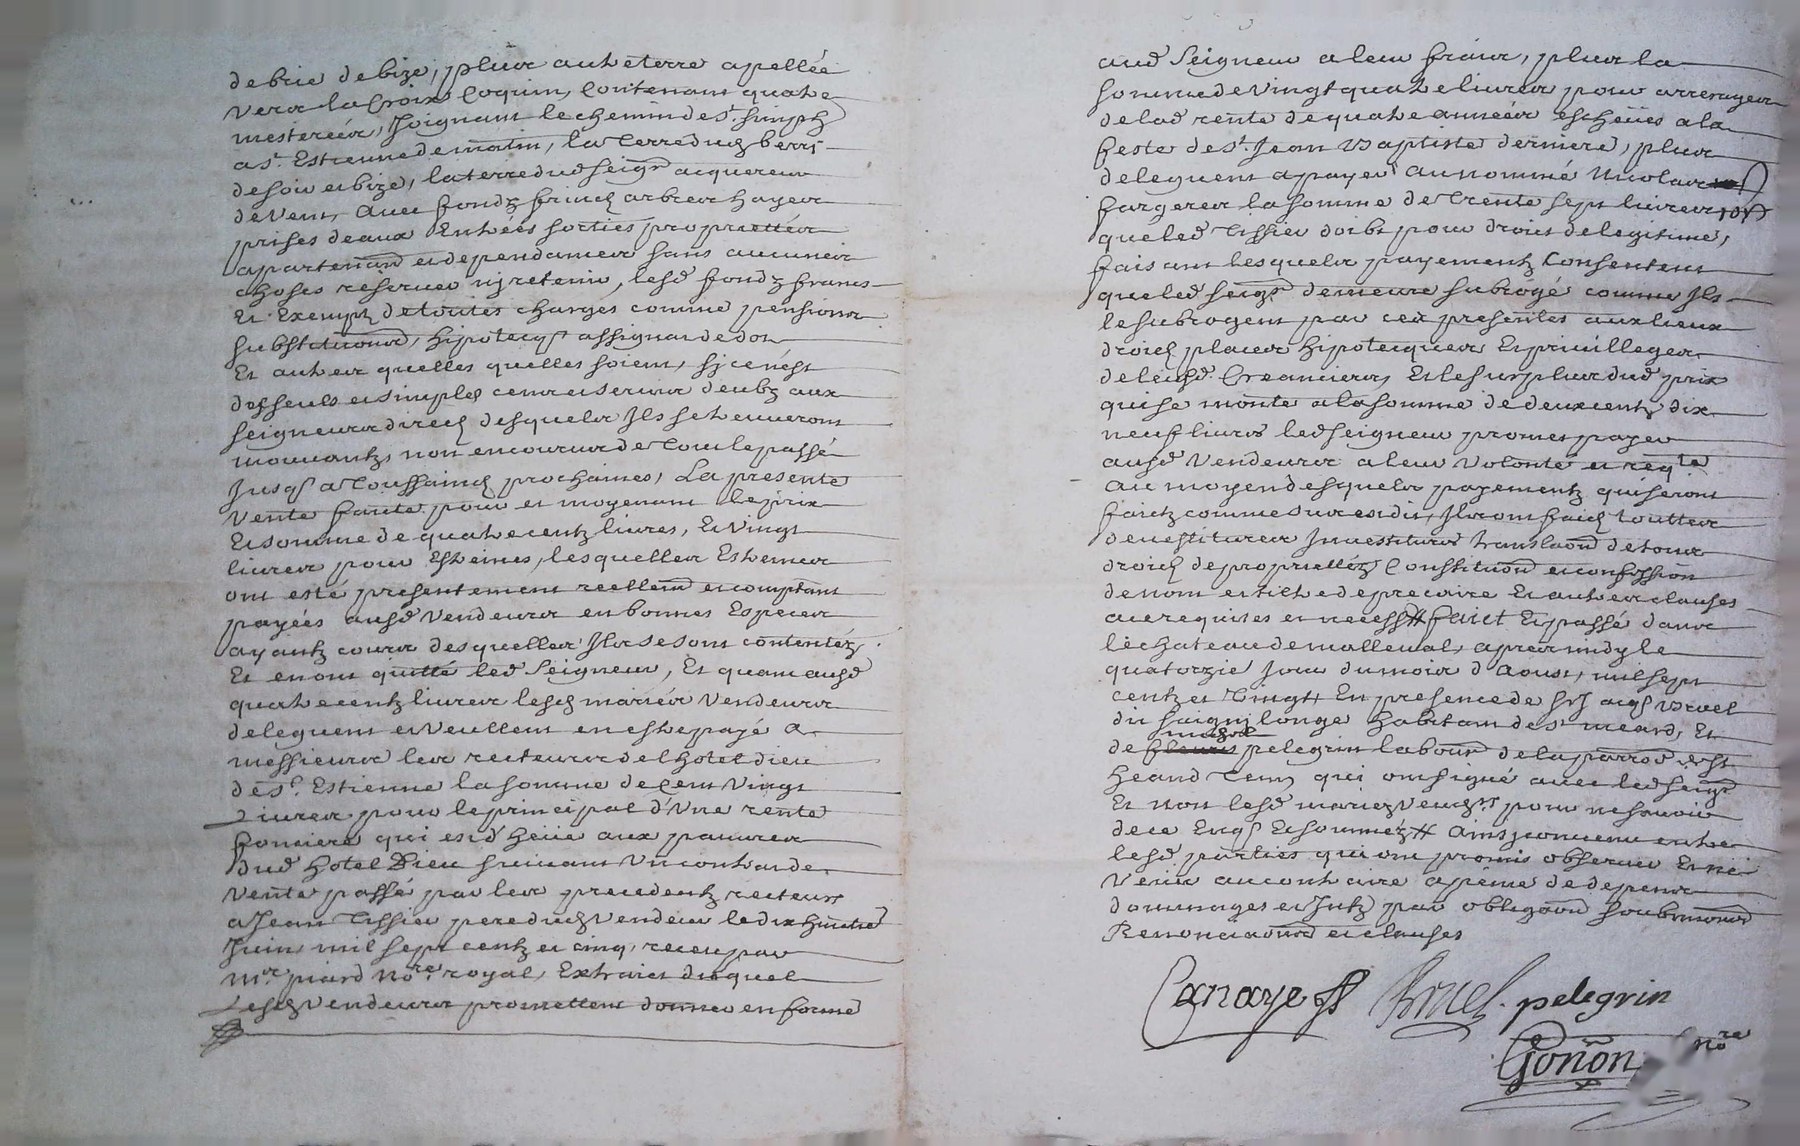 de brie de bize, plus autre terre apellée
vers la Croix Coquin, Contenant quatre
mesterées, Joignant le chemin de st. simph
a st. Estienne de matin, la terre dud berri
de soir et bize, la terre dud seigr acquereur
de vent, avec fondz frinctz arbres hayes
prises deaux Entrées sorties proprietteés
apartenand et dependances sans aucunes
choses reserver ny retenir, lesd fondz francs
Et Exemptz de toutes charges comme pensions
substituaons, hipotecqs assignas de don
Et autres quelles quelles soient, sy ce n'est
des seuls et simples cens et servis deubz aux
seigneurs directz desquels Ils se treuveront
mouvantz, non encourus de Tout le passé
Jusqs a Toussainctz prochaines, La presente
vente faite pour et moyenant le prix
Et somme de quatre centz livres, Et vingt
livres pour Estreines, lesquelles Estreines
ont esté presentement reellemt et comptant
payées ausd vendeurs en bonnes Especes
ayantz cours desquelles Ils se sont contentéz
Et en ont quitté led Seigneur, Et quant ausd
quatre centz livres lesd mariés vendeurs
deleguent et veullent en estre payé a
messieurs les recteurs de l'hotel dieu
de st. Estienne la somme de Cent vingt
Livres pour le principal d'Une rente
fonciere qui est dheüe aux pauvres
dud hotel Dieu suivant Un contrat de
vente passé par les precedentz recteurs
a Jean Tissieu pere dud vendeur le dix huitie
Juin mil sept centz et cinq, receu par
mor piard nore royal, Extraict duquel
Lesd vendeurs promettent donner en forme
aud Seigneur a leur frais, plus la
somme de Vingt quatre livres pour arrerages
de lad rente de quatre années escheües a la
feste de st. Jean Baptiste derniere, plus
deleguent a payer au nommé Nicolas
fargeres la somme de Trente sept livres 10 s
que led Tissieu doibt pour droict de legitime,
faisant lesquels payementz Consentent
que led seigr demeure subrogé comme Ils
le subrogent par ces presentes aux lieux
droictz places hipotecques Et privilleges
de leusd Creanciers, Et le surplus dud prix
qui se monte a la somme de deux centz dix
neuf livres led Seigneur promet payer
ausd vendeurs a leur volonté et reqte
au moyen desquels payementz qui seront
faictz comme sur est dit, Ils ont faict touttes
devestitures Investitures translaon de tous
droictz de proprietéz Constituon et confession
de nom et titre de precaire Et autres clauses
ace requises et necess# faict Et passé dans
le chateau de malleval, apres midy le
quatorzie Jour du mois d'Aoust, mil sept
centz et vingt En presence de
dit longe habitant de st meard, Et
de michel pelegrin labour de la parroe de st
heand Tems qui ont signé avec led seigr
Et non lesd mariez vendrs pour ne scavoir
de ce Enqs Et sommez # Ainsy convenu entre
lesd parties qui ont promis observer Et ne
venir au contraire a peine de depens
dommages et Jntz par obligaon soubmissions
Renonciaons et clauses
Canaye Bruel pelegrin
Gonon nore